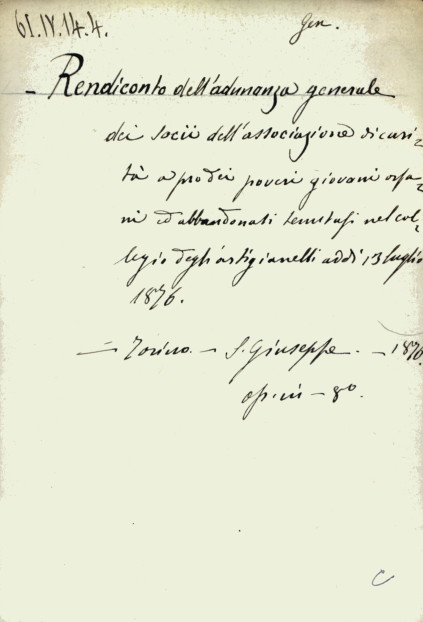 61.IV.14.4.
Gen.
- Rendiconto dell'adunanza generale
dei socii dell'associazione di cari=
tà a prò dei poveri giovani orfa=
ni ed abbandonati tenutasi nel col=
legio degli artigianelli addì 13 luglio
1876.
— Torino. — S. Giuseppe. — 1876
op. in — 8º.
C